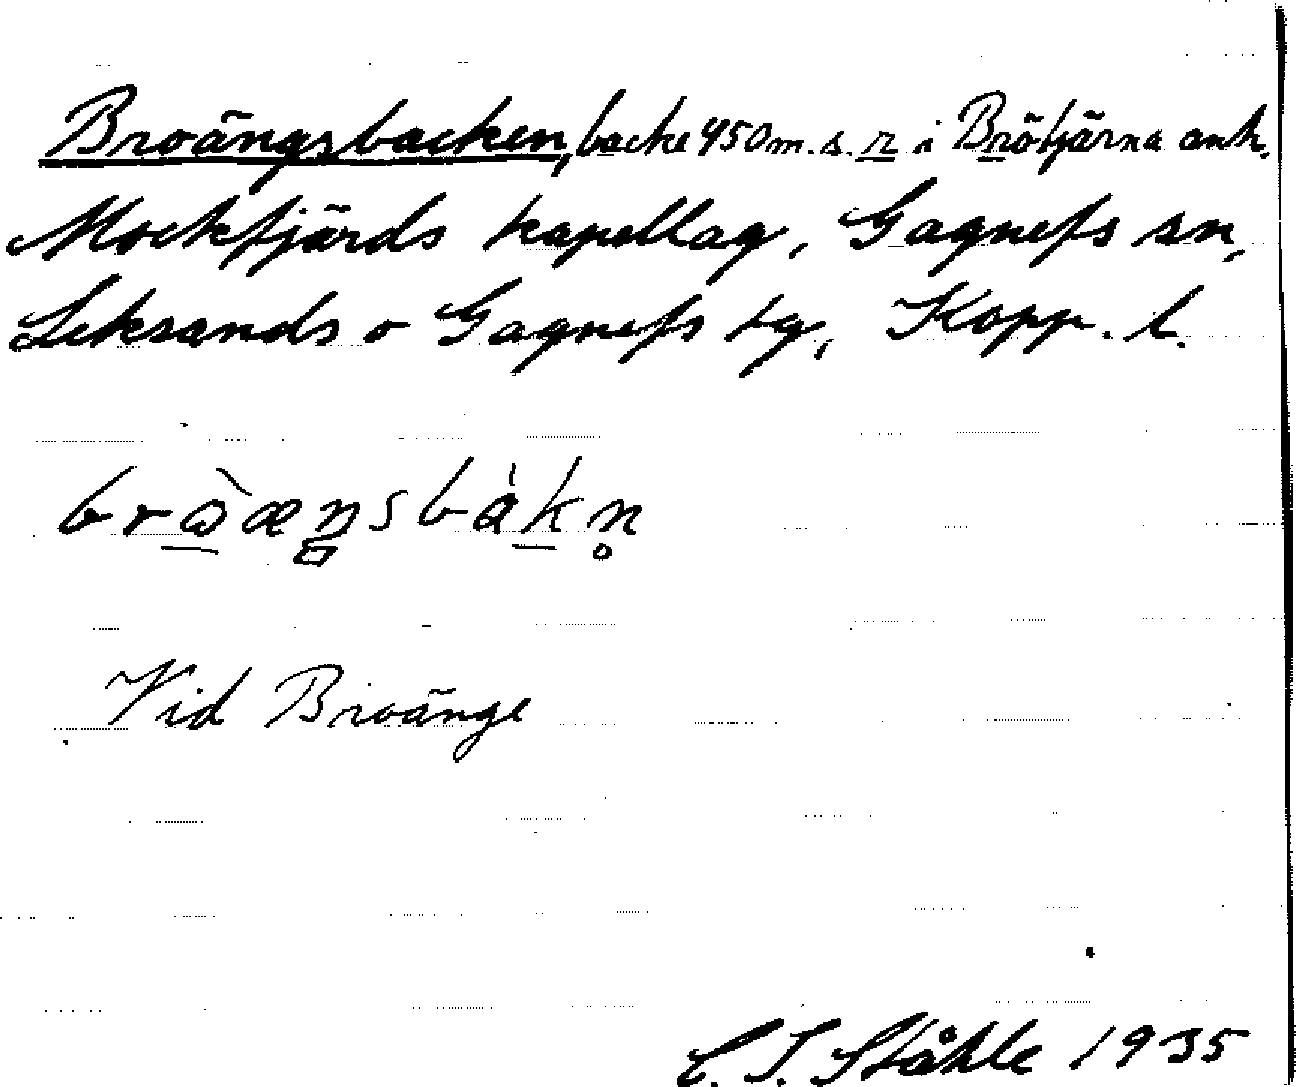 Broängsbacken, backe 950 m. s. r i Brötjärna anh.
Mockfjärds kapellag, Gagnefs sn,
Leksands o Gagnefs tg, Kopp. l.
Vid Broänge
C. I. Ståhle 1935